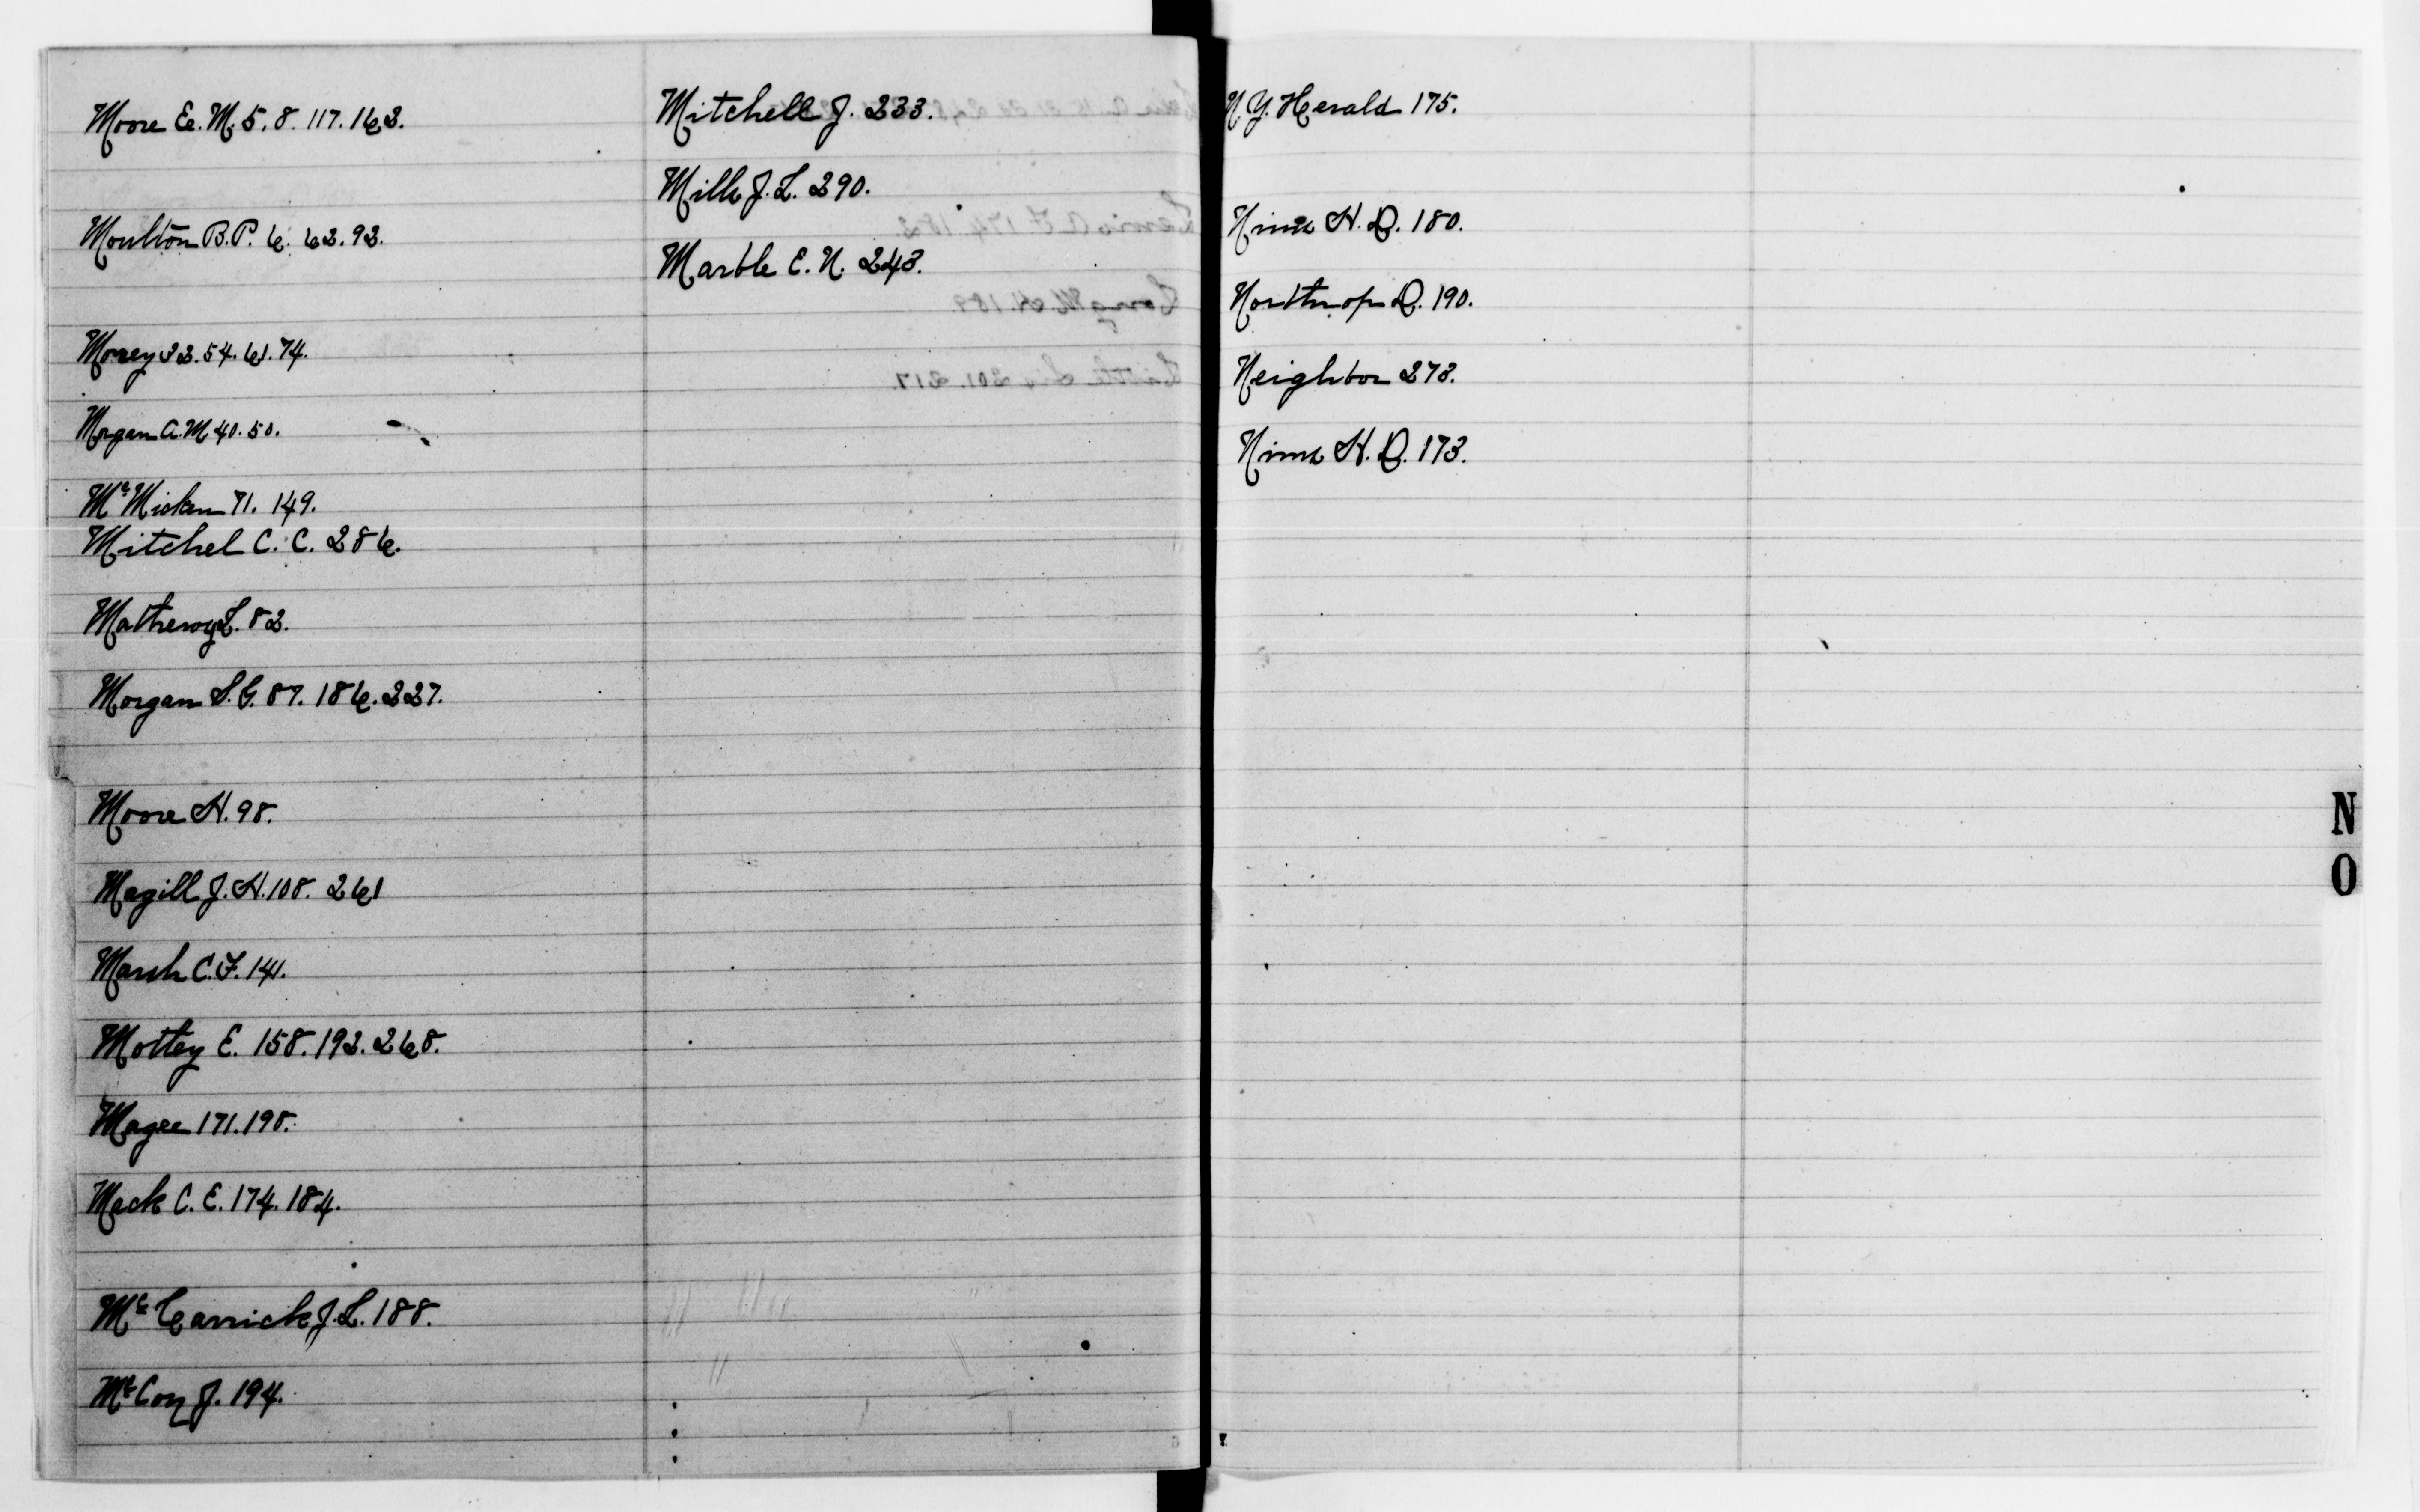 Moore E. M. 5. 8. 117. 163.
Moulton B.P. 6. 63. 93.
Morey 33. 54. 61. 74.
Morgan A. M. 40. 50.
McMicken 71. 149.
Mitchel C. C. 286.
Mathewy L. 83.
Morgan S. G. 87. 186. 227.
Moore H. 98.
Magill J. H. 108. 261
Marsh C. F. 141.
Mottey E. 158. 193. 268.
Magee 171. 198.
Mack C. E. 174. 184.
McCarrick J. L. 188.
McCoy J. 194.
Mitchell J. 233.
Mills J. L. 290.
Marble E. N. 243.
N. Y. Herald 175.
Nims H. D. 180.
Northrop D. 190.
Neighbor 273.
Nims H. D. 173.
N
O